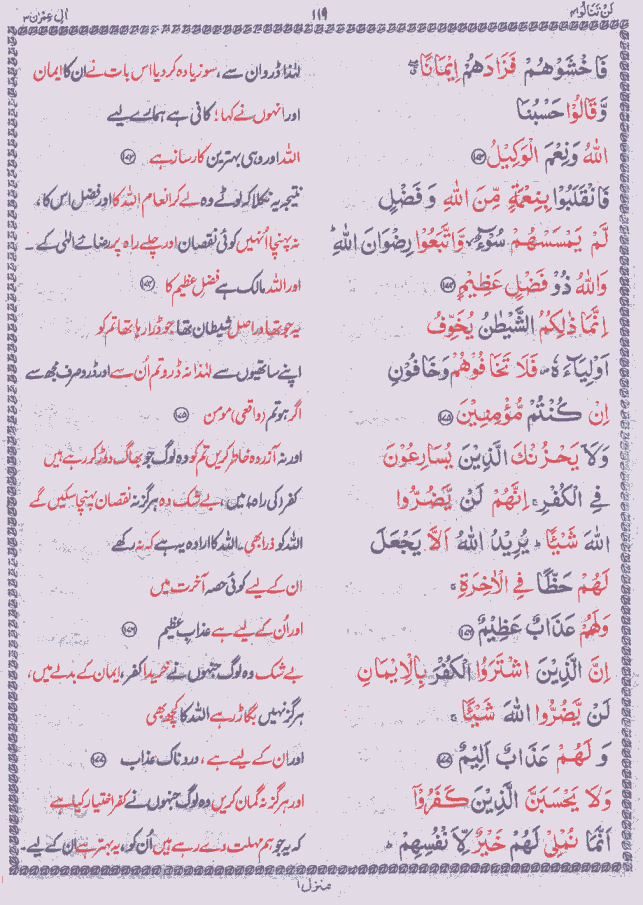 لَنْ تَنَالُوا ٤ ١١٩ اٰلِ عِمْرٰن ٣
فَاخْشَوْهُمْ فَزَادَهُمْ اِیْمَانًا لہٰذا ڈرو ان سے، سو زیادہ کر دیا اس بات نے ان کا ایمان
وَّقَالُوْا حَسْبُنَا اور انہوں نے کہا! کافی ہے ہمارے لیے
اللّٰهُ وَنِعْمَ الْوَكِیْلُ ﴿۱۷۳﴾ اللہ اور وہی بہترین کارساز ہے ﴿۱۷۳﴾
فَانْقَلَبُوْا بِنِعْمَةٍ مِّنَ اللّٰهِ وَفَضْلٍ نتیجہ یہ نکلا کہ لوٹے وہ لے کر انعام اللہ کا اور فضل اس کا،
لَّمْ یَمْسَسْهُمْ سُوْٓءٌ وَّاتَّبَعُوْا رِضْوَانَ اللّٰهِ نہ پہنچا اُنہیں کوئی نقصان اور چلے راہ پر رضائے الٰہی کے۔
وَاللّٰهُ ذُوْ فَضْلٍ عَظِیْمٍ ﴿۱۷۴﴾ اور اللہ مالک ہے فضلِ عظیم کا ﴿۱۷۴﴾
اِنَّمَا ذٰلِكُمُ الشَّیْطٰنُ یُخَوِّفُ یہ جو تھا دراصل شیطان تھا جو ڈرا رہا تھا تم کو
اَوْلِیَآءَهٗ فَلَا تَخَافُوْهُمْ وَخَافُوْنِ اپنے ساتھیوں سے لہٰذا نہ ڈرو تم اُن سے اور ڈرو صرف مجھ سے
اِنْ كُنْتُمْ مُّؤْمِنِیْنَ ﴿۱۷۵﴾ اگر ہو تم (واقعی) مومن ﴿۱۷۵﴾
وَلَا یَحْزُنْكَ الَّذِیْنَ یُسَارِعُوْنَ اور نہ آزردہ خاطر کریں تم کو وہ لوگ جو بھاگ دوڑ کر رہے ہیں
فِی الْكُفْرِ اِنَّهُمْ لَنْ یَّضُرُّوا کفر کی راہ میں، بے شک وہ ہرگز نہ نقصان پہنچا سکیں گے
اللّٰهَ شَیْئًا یُرِیْدُ اللّٰهُ اَلَّا یَجْعَلَ اللہ کو ذرا بھی۔ اللہ کا ارادہ یہ ہے کہ نہ رکھے
لَهُمْ حَظًّا فِی الْاٰخِرَةِ ان کے لیے کوئی حصہ آخرت میں
وَلَهُمْ عَذَابٌ عَظِیْمٌ ﴿۱۷۶﴾ اور اُن کے لیے ہے عذابِ عظیم ﴿۱۷۶﴾
اِنَّ الَّذِیْنَ اشْتَرَوُا الْكُفْرَ بِالْاِیْمَانِ بے شک وہ لوگ جنہوں نے خریدا کفر، ایمان کے بدلے میں،
لَنْ یَّضُرُّوا اللّٰهَ شَیْئًا ہرگز نہیں بگاڑ رہے اللہ کا کچھ بھی
وَلَهُمْ عَذَابٌ اَلِیْمٌ ﴿۱۷۷﴾ اور ان کے لیے ہے، دردناک عذاب ﴿۱۷۷﴾
وَلَا یَحْسَبَنَّ الَّذِیْنَ كَفَرُوْٓا اور ہرگز نہ گمان کریں وہ لوگ جنہوں نے کفر اختیار کیا ہے
اَنَّمَا نُمْلِیْ لَهُمْ خَیْرٌ لِّاَنْفُسِهِمْ کہ یہ جو ہم مہلت دے رہے ہیں اُن کو، یہ بہتر ہے ان کے لیے
منزل ١